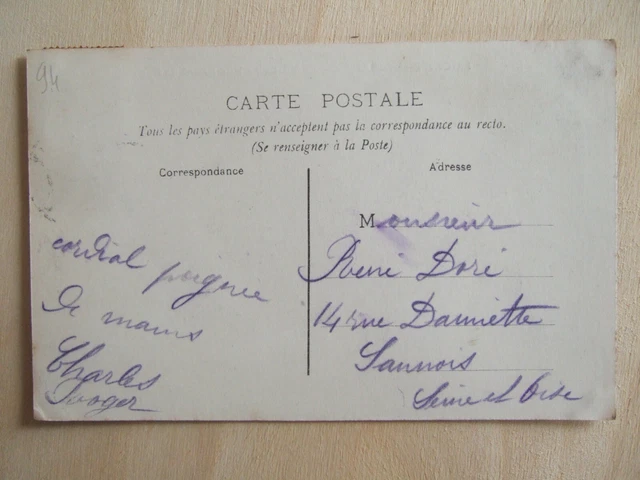 94
CARTE POSTALE
Tous les pays étrangers n'acceptent pas la correspondance au recto.
(Se renseigner à la Poste)
Correspondance
cordial poignee
de mains
Charles
Adresse
Monsieur
René Doré
14 rue Damiette
Sannois
Seine et Oise